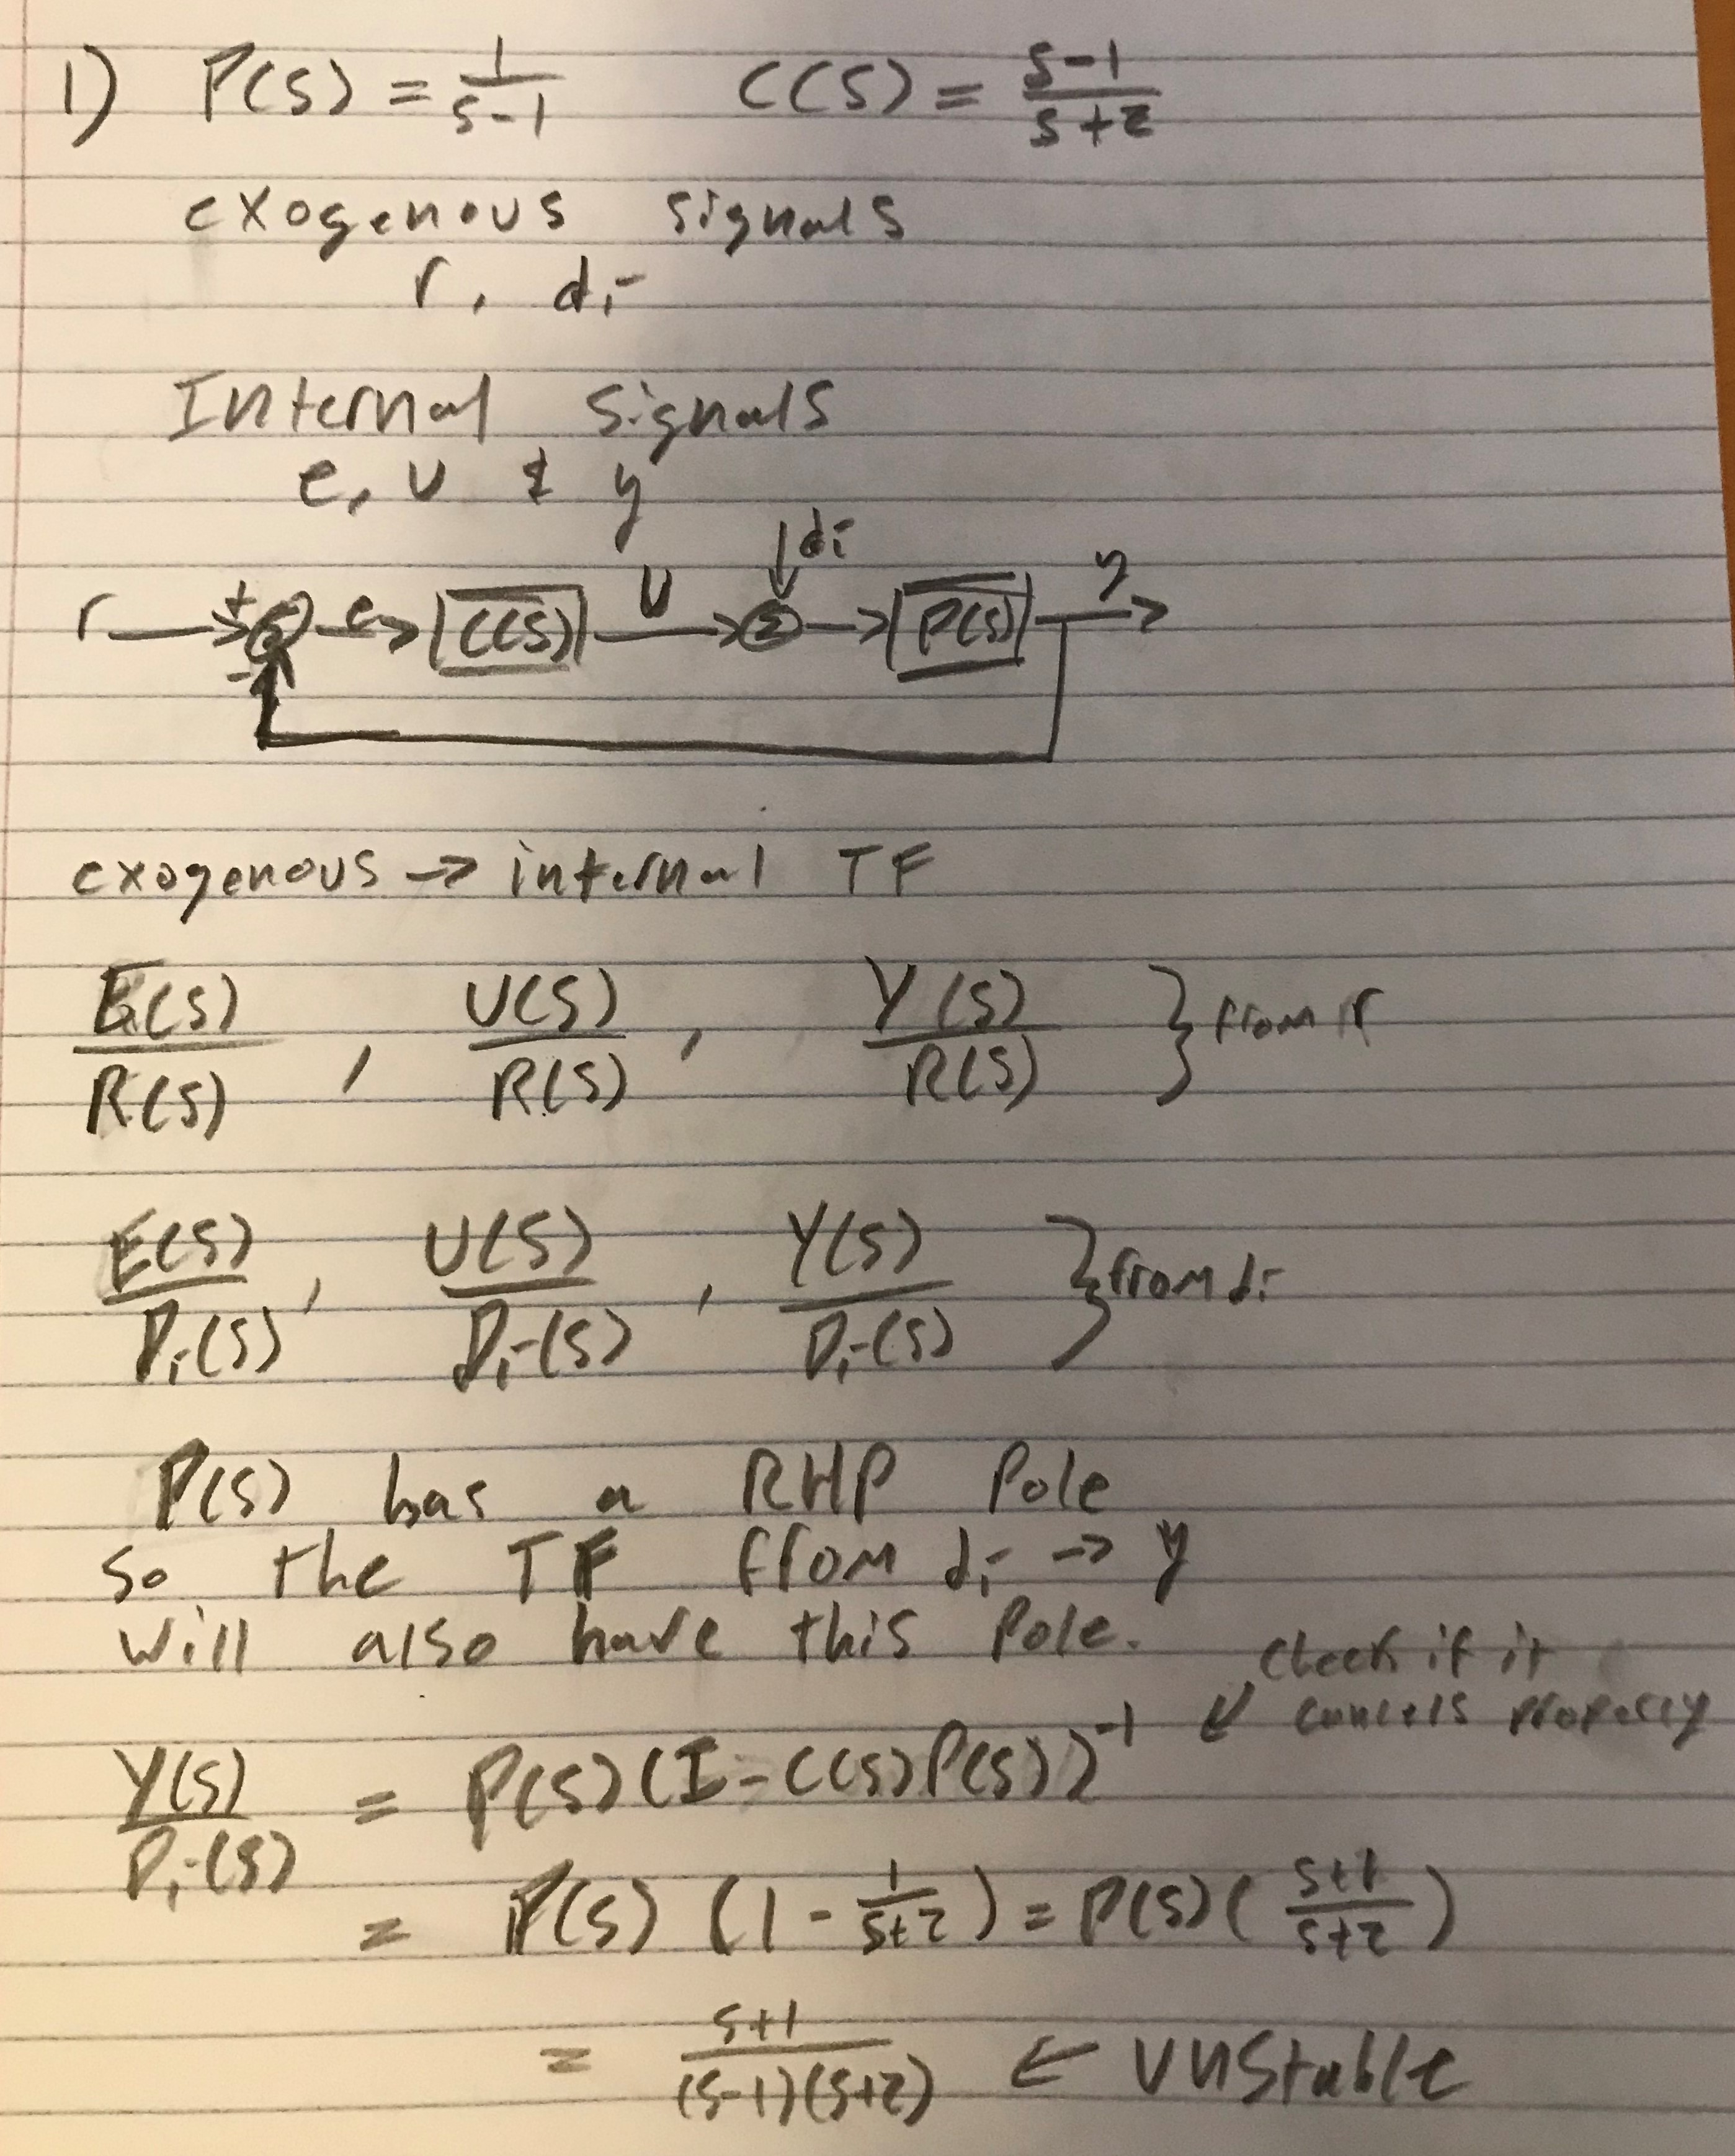 1) P(s) = 1/(s-1) C(s) = (s-1)/(s+2)
exogenous signals
r, di
Internal signals
e, u & y
r + - Σ e C(s) u Σ di P(s) y
exogenous -> internal TF
E(s)/R(s) , U(s)/R(s) , Y(s)/R(s) } from r
E(s)/Di(s) , U(s)/Di(s) , Y(s)/Di(s) } from di
P(s) has a RHP Pole
so the TF from di -> y
will also have this Pole.
check if it
cancels properly
Y(s)/Di(s) = P(s)(I - C(s)P(s))^-1
= P(s) (1 - 1/(s+2)) = P(s)( (s+1)/(s+2) )
= (s+1)/((s-1)(s+2)) ← unstable